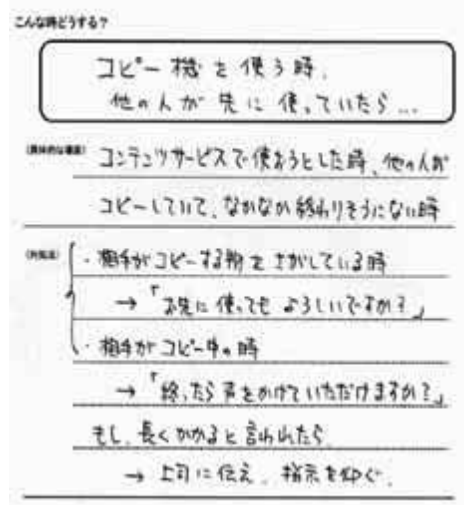 こんな時どうする？
コピー機を使う時、
他の人が先に使っていたら…
(具体的な場面) コンテンツサービスで使おうとした時、他の人が
コピーしていて、なかなか終わりそうにない時
(対処法) ・相手がコピーする物をさがしている時
→「お先に使ってもよろしいですか？」
・相手がコピー中の時
→「終ったら声をかけていただけますか？」
もし、長くかかると言われたら
→ 上司に伝え、指示を仰ぐ。